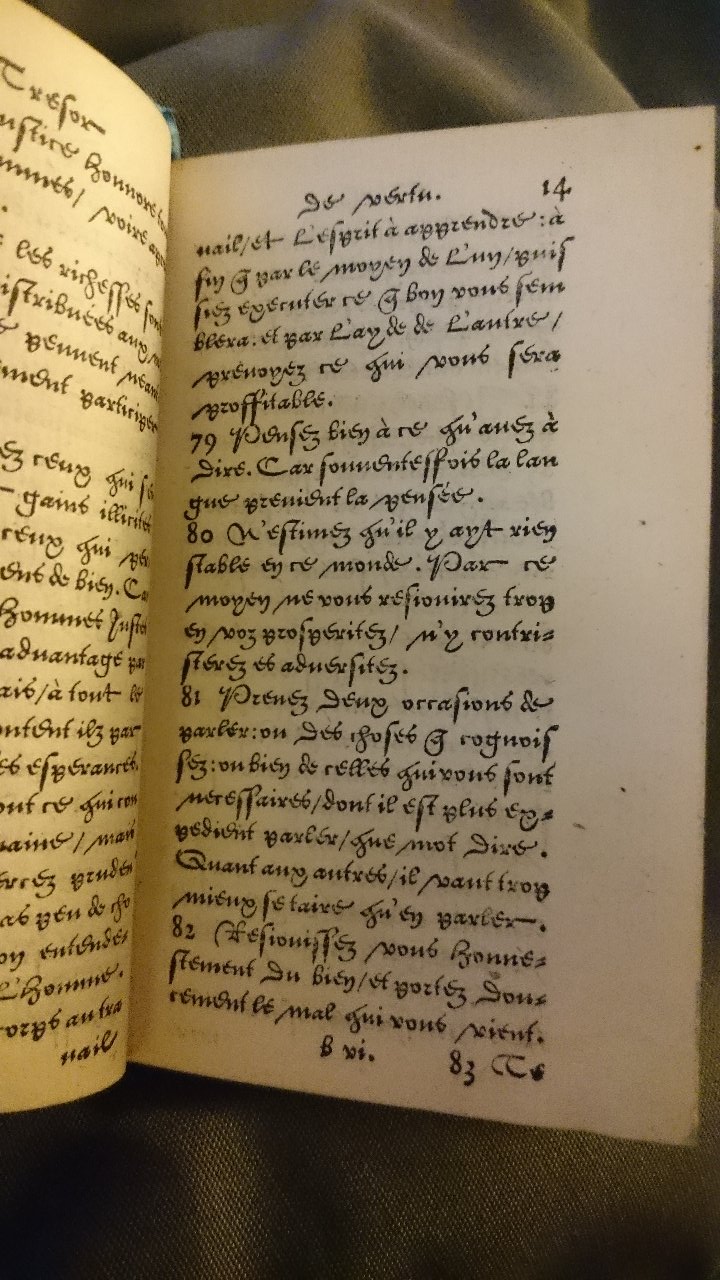 Tresor
justice honnore
ommes/ voire
les richesses
distribuees aux
peuuent
ment participer
ez ceux qui
gains illicites
ceux qui
ens de bien.
hommes justes
aduantage
ais/à tout le
ontent ilz par
es esperances.
ont ce qui
aine/
ercez
as peu de cho
on entende-
L'homme.
corps au tra
uail
De vertu. 14
uail/et L'esprit à apprendre: à
fin q̃ par le moyen de L'un/puis
siez executer ce q̃ bon vous sem
blera: et par L'ayde de L'autre/
preuoyez ce qui vous sera
proffitable.
79 Pensez bien à ce qu'auez à
dire. Car souuentesfois la lan
gue preuient la pensée.
80 N'estimez qu'il y ayt rien
stable en ce monde. Par ce
moyen ne vous resiouirez trop
en voz prosperitez/ n'y contri-
sterez es aduersitez.
81 Prenez deux occasions de
parler: ou des choses q̃ cognois
sez: ou bien de celles qui vous sont
necessaires/dont il est plus ex-
pedient parler/que mot dire.
Quant aux autres/il vaut trop
mieux se taire qu'en parler.
82 Resiouissez vous honne-
stement du bien/et portez dou-
cement le mal qui vous vient.
b vi. 83 Te